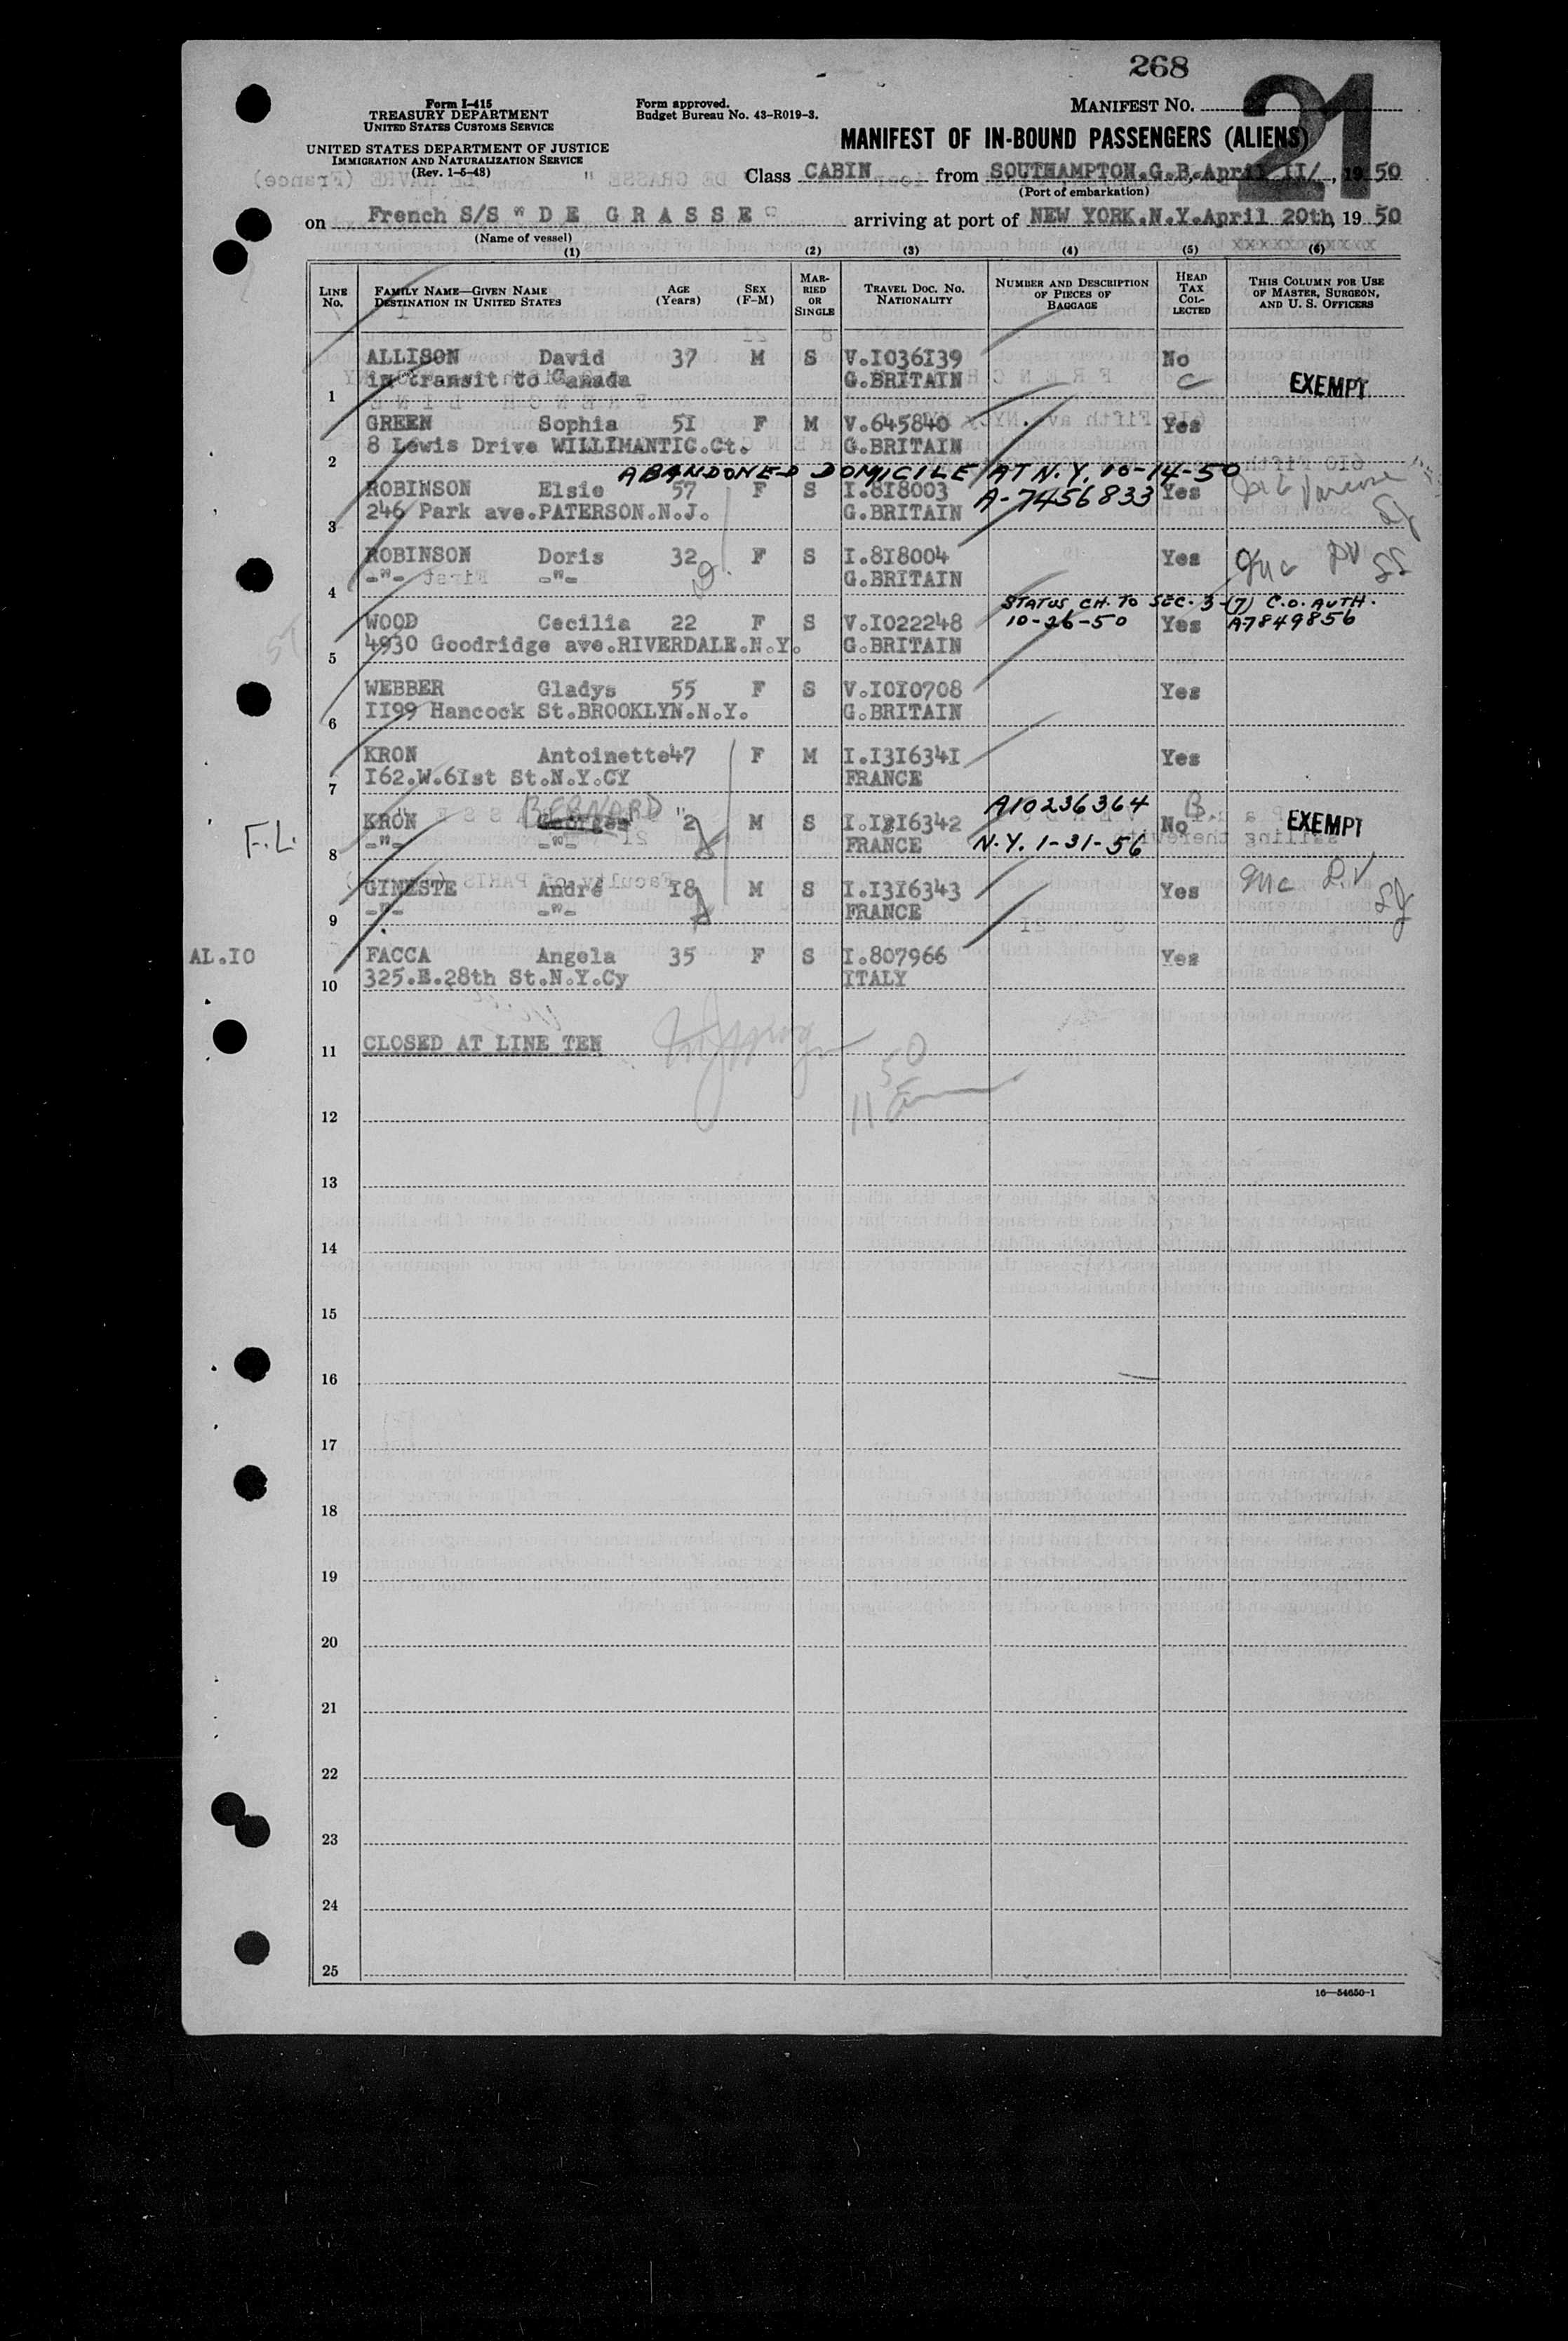 268
Form I-415
TREASURY DEPARTMENT
UNITED STATES CUSTOMS SERVICE
UNITED STATES DEPARTMENT OF JUSTICE
IMMIGRATION AND NATURALIZATION SERVICE
(Rev. 1-5-48)
Form approved.
Budget Bureau No. 43-R019-3.
MANIFEST NO. 21
MANIFEST OF IN-BOUND PASSENGERS (ALIENS)
Class CABIN from SOUTHAMPTON.G.B.April II/, 19 50
(Port of embarkation)
on French S/S "D E G R A S S E" arriving at port of NEW YORK.N.Y.April 20th, 19 50
(Name of vessel)
(1) (2) (3) (4) (5) (6)
LINE No. FAMILY NAME—GIVEN NAME DESTINATION IN UNITED STATES AGE (Years) SEX (F-M) MARRIED OR SINGLE TRAVEL DOC. NO. NATIONALITY NUMBER AND DESCRIPTION OF PIECES OF BAGGAGE HEAD TAX COLLECTED THIS COLUMN FOR USE OF MASTER, SURGEON, AND U. S. OFFICERS
ALLISON David 37 M S V.I036I39 No
1 in transit to Canada G.BRITAIN C EXEMPT
GREEN Sophia 5I F M V.645840 Yes
2 8 Lewis Drive WILLIMANTIC.Ct. G.BRITAIN
ABANDONED DOMICILE AT N.Y. 10-14-50
ROBINSON Elsie 57 F S I.8I8003 A-7456833 Yes
3 246 Park ave.PATERSON.N.J. G.BRITAIN
ROBINSON Doris 32 F S I.8I8004 Yes
4 -"- -"- G.BRITAIN
STATUS CH. TO SEC. 3-(7) C.O. AUTH.
WOOD Cecilia 22 F S V.I022248 10-26-50 Yes A7849856
5 4930 Goodridge ave.RIVERDALE.N.Y. G.BRITAIN
WEBBER Gladys 55 F S V.I0I0708 Yes
6 II99 Hancock St.BROOKLYN.N.Y. G.BRITAIN
KRON Antoinette 47 F M I.I3I634I Yes
7 I62.W.6Ist St.N.Y.CY FRANCE
BERNARD
F.L. KRON Georges "2 M S I.I3I6342 A10236364 No B. EXEMPT
8 -"- -"- FRANCE N.Y. 1-31-56
GINESTE André I8 M S I.I3I6343 Yes
9 -"- -"- FRANCE
AL.IO FACCA Angela 35 F S I.807966 Yes
10 325.E.28th St.N.Y.Cy ITALY
11 CLOSED AT LINE TEN
50
11
12
13
14
15
16
17
18
19
20
21
22
23
24
25
16—54650-1